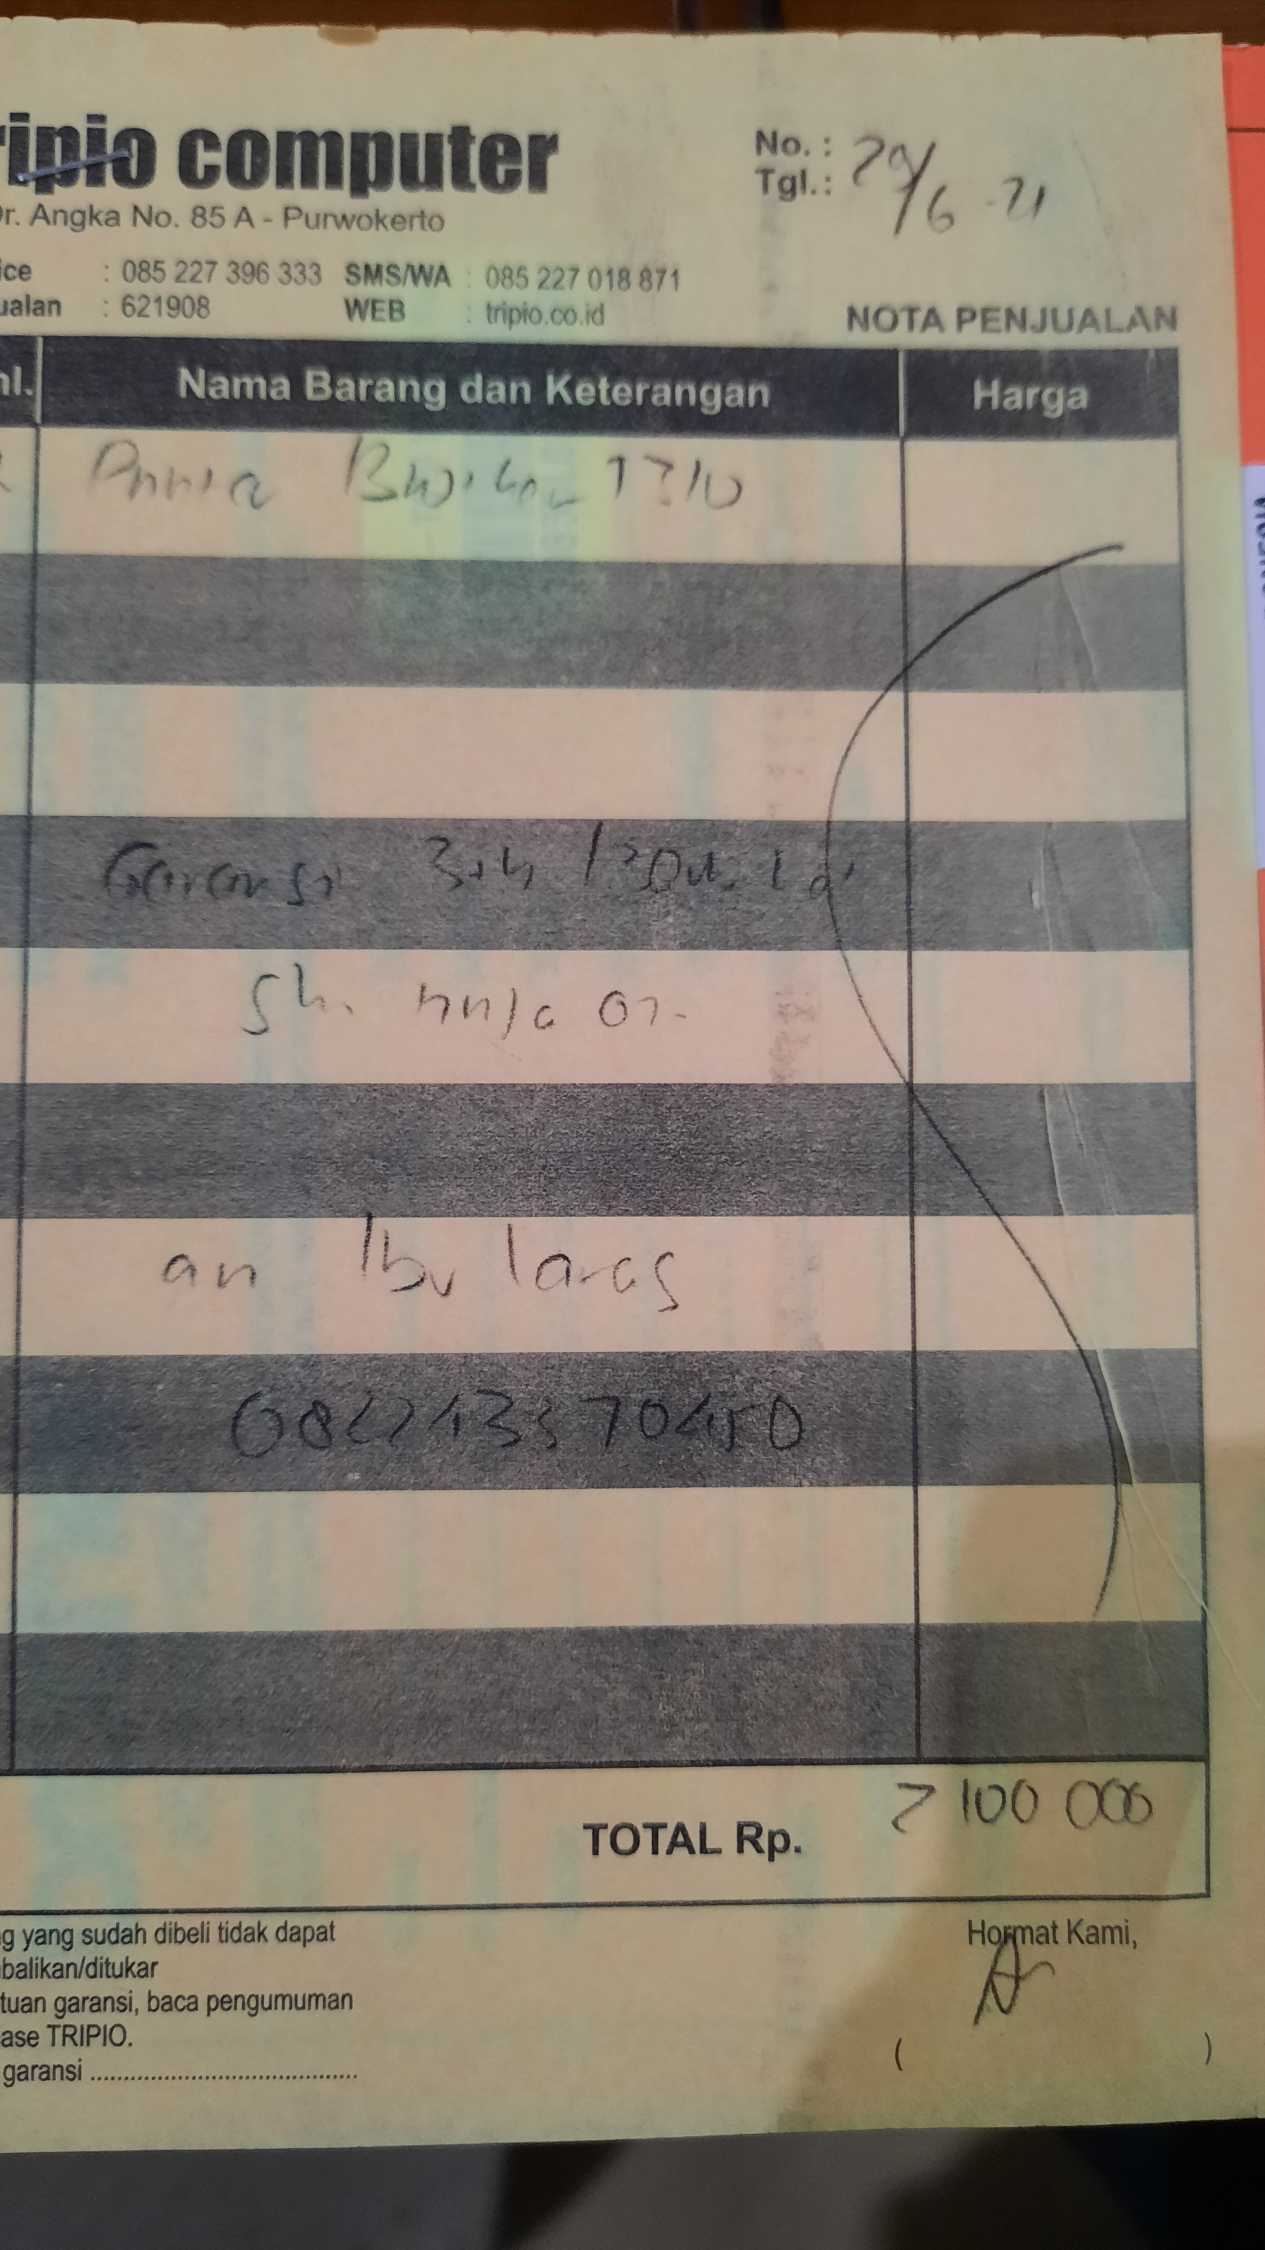 ripio computer
Dr. Angka No. 85 A - Purwokerto
ice : 085 227 396 333 SMS/WA : 085 227 018 871
ualan : 621908 WEB : tripio.co.id
No. :
Tgl. : 29/6-21
NOTA PENJUALAN
ml. Nama Barang dan Keterangan Harga
Garansi 3th
an Ibu laras
TOTAL Rp. 2 100 000
g yang sudah dibeli tidak dapat
balikan/ditukar
tuan garansi, baca pengumuman
ase TRIPIO.
garansi
Hormat Kami,
( )